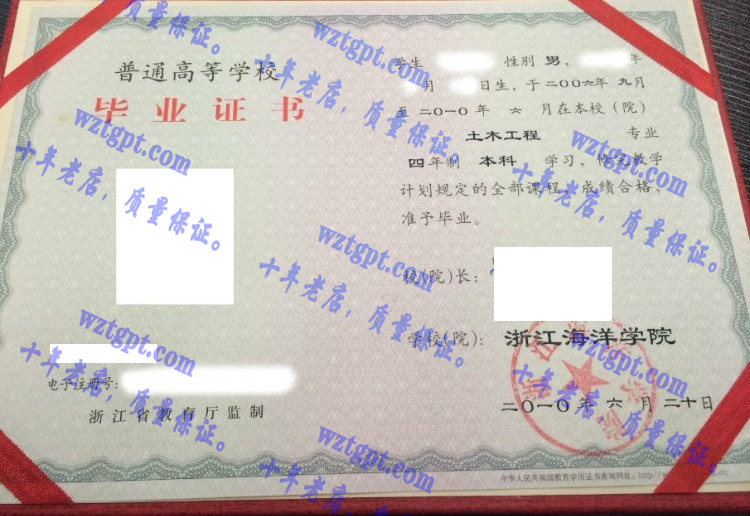 普通高等学校
毕业证书
电子注册号：
浙江省教育厅监制
学生 性别 男， 年
月 日生，于二〇〇六年 九月
至 二〇一〇 年 六 月在本校（院）
土木工程 专业
四年制 本科 学习，修完教学
计划规定的全部课程，成绩合格，
准予毕业。
校（院）长：
学校（院）： 浙江海洋学院
二〇一〇 年 六 月 二十日
中华人民共和国教育部学历证书查询网址：http:/
wztgpt.com
十年老店，质量保证。
wztgpt.com
十年老店，质量保证。
wztgpt.com
十年老店，质量保证。
wztgpt.com
十年老店，质量保证。
wztgpt.com
十年老店，质量保证。
wztgpt.com
十年老店，质量保证。
wztgpt.com
十年老店，质量保证。